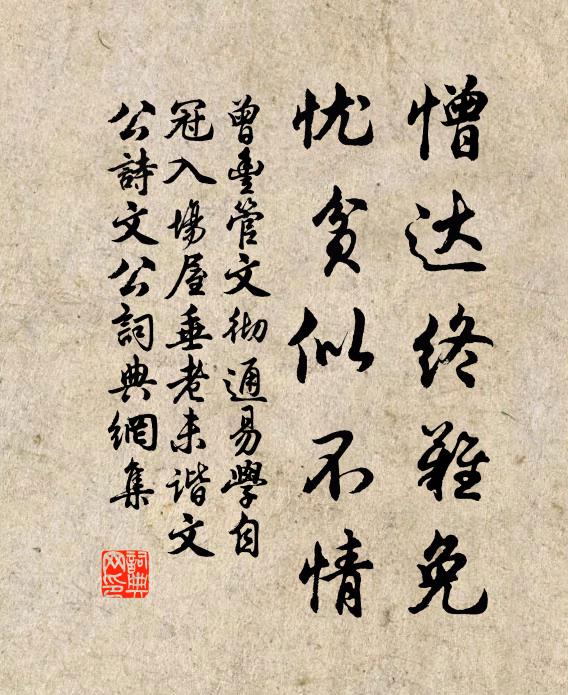 憎达终难免
忧贫似不情
曾豐管文彻通易學自
冠入場屋垂老未谐文
公詩文公詞典網集
詞典網印